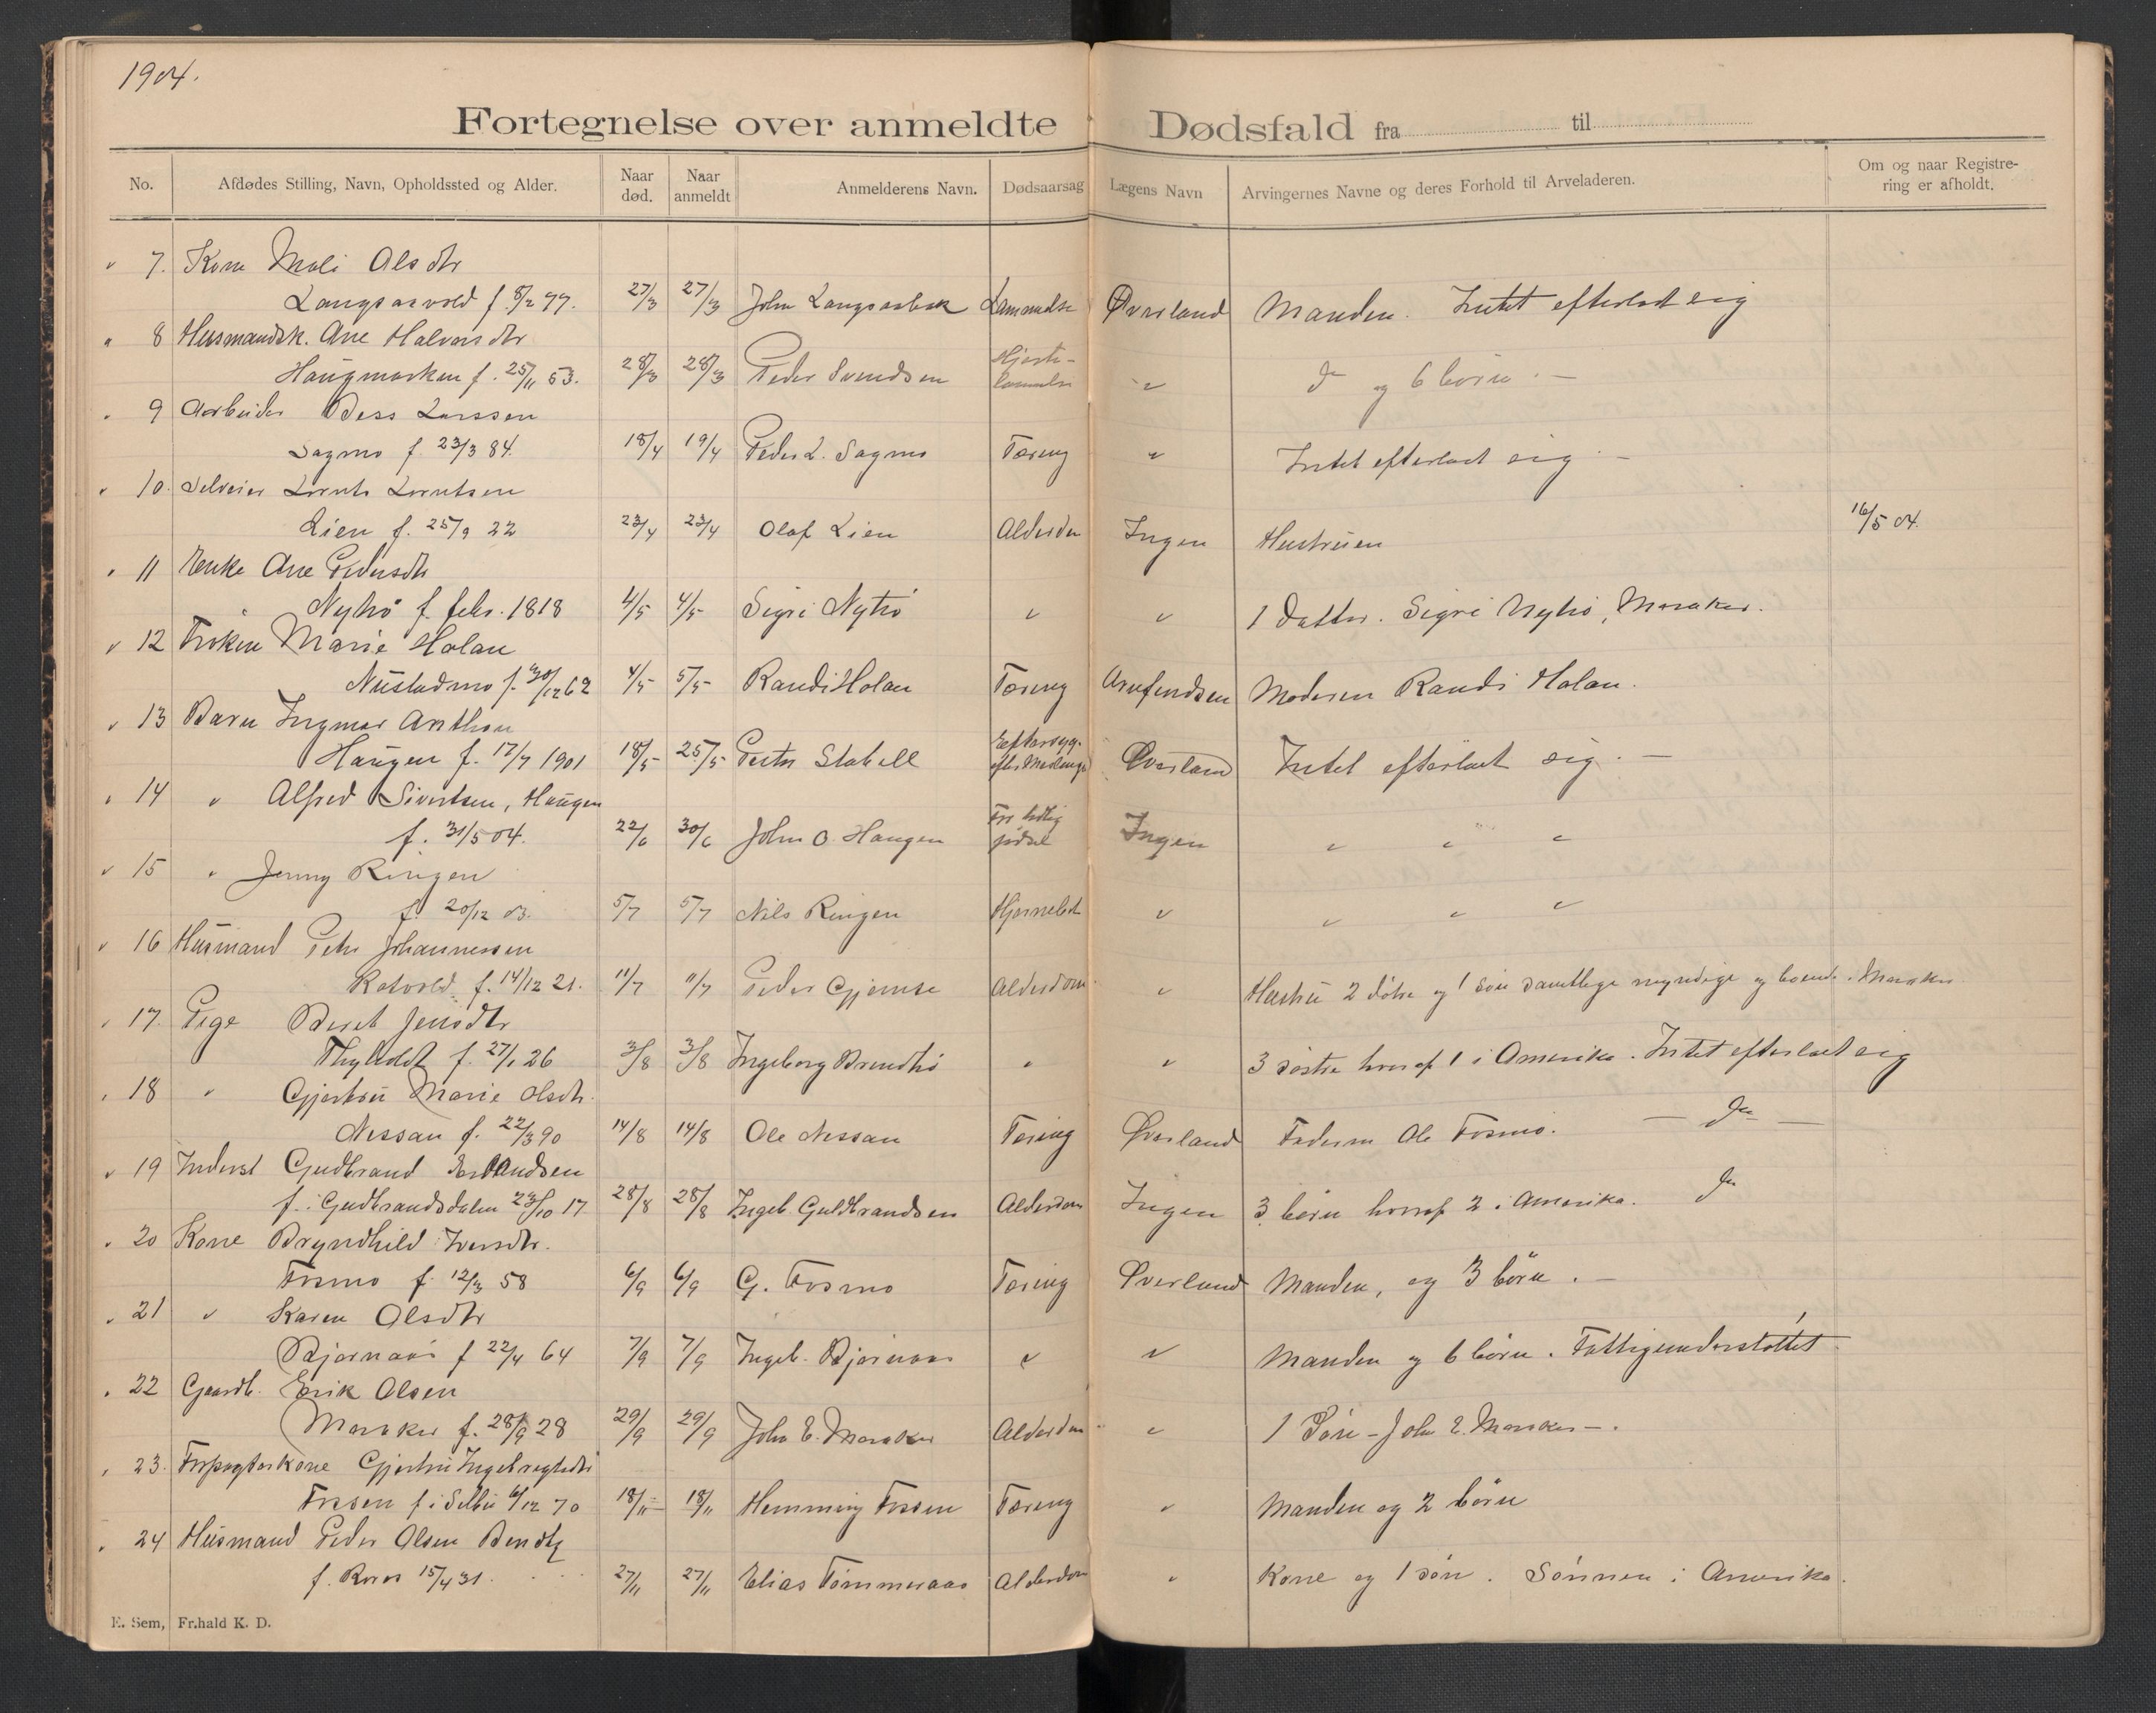 1904.
Fortegnelse over anmeldte Dødsfald fra til
No. Afdødes Stilling, Navn, Opholdssted og Alder. Naar død. Naar anmeldt Anmelderens Navn. Dødsaarsag Lægens Navn Arvingernes Navne og deres Forhold til Arveladeren. Om og naar Registrering er afholdt.
7. Kone Mali Olsdtr
Langsaavold f. 8/2 77. 27/3 27/3 John Langsaavold Øverland Manden. Intet efterladt sig
8 Husmandsk. Ane Halvorsdtr
Haugmarken f. 25/11 53. 28/3 28/3 Peder Svendsen Hjerte-lammelse " do og 6 børn. —
9 Arbeider Larssen
Sagmo f. 23/3 84. 18/4 19/4 Peder L. Sagmo Tæring " Intet efterladt sig —
10. Selveier Lornts Lorntsen
Lien f. 25/9 22 23/4 23/4 Olaf Lien Alderdom Ingen Hustruen 16/5 04.
11 Enke Ane Pedersdtr
Nytrø f. febr. 1818 4/5 4/5 Sigri Nytrø " " 1 Datter. Sigri Nytrø, Meraker.
12 Frøken Marie Holan
Nustadmo f. 30/12 62 4/5 5/5 Randi Holan Tæring Arnfindsen Moderen Randi Holan.
13 Barn Ingmar Anthon
Haugen f. 17/7 1901 18/5 25/5 Petter Stabell Eftersyg. efter Meslinger Øverland Intet efterladt sig. —
14 " Alfred Sivertsen, Haugen
f. 31/5 04. 22/6 30/6 John O. Haugen For tidlig fødsel Ingen " " "
15 " Jenny Ringen
f. 20/12 03. 5/7 5/7 Nils Ringen " " " "
16 Husmand Peter Johannessen
Kotvold f. 14/12 21. 11/7 11/7 Peder Gjemse Alderdom " Hustru 2 døtre og 1 søn samtlige myndige og boende i Meraker
17. Pige Beret Jensdtr
f. 27/1 26 3/8 3/8 Ingeborg Brendtrø " " 3 søstre hvoraf 1 i Amerika. Intet efterladt sig
18 " Gjertru Marie Olsdtr.
Nessan f. 22/3 90 14/8 14/8 Ole Nessan Tæring Øverland Faderen Ole Fosmo. — do —
19 Inderst Gudbrand
f. i Gudbrandsdalen 23/10 17 28/8 28/8 Ingeb. Guldbrandsen Alderdom Ingen 3 børn hvoraf 2 i Amerika. do
20 Kone Bryndhild Iversdtr.
Fosmo f. 12/3 58 6/9 6/9 G. Fosmo Tæring Øverland Manden, og 3 børn. —
21 " Karen Olsdtr
Bjørnaas f 22/4 64 7/9 7/9 Ingeb. Bjørnaas " " Manden og 6 børn. Fattigunderstøttet.
22 Gaardb. Erik Olsen
Meraker f. 28/9 28 29/9 29/9 John E. Meraker Alderdom " 1 Søn – John E. Meraker –.
23. Forpagterkone Gjertru Ingebrigtsdtr
Fossen f i Selbu 6/12 70 18/11 18/11 Hemming Fossen Tæring " Manden og 2 børn
24 Husmand Peder Olsen
f. Røros 15/4 31. 27/11 27/11 Elias Tømmeraas Alderdom " Kone og 1 søn. Sønnen i Amerika.
E. Sem, Fr.hald K. D.